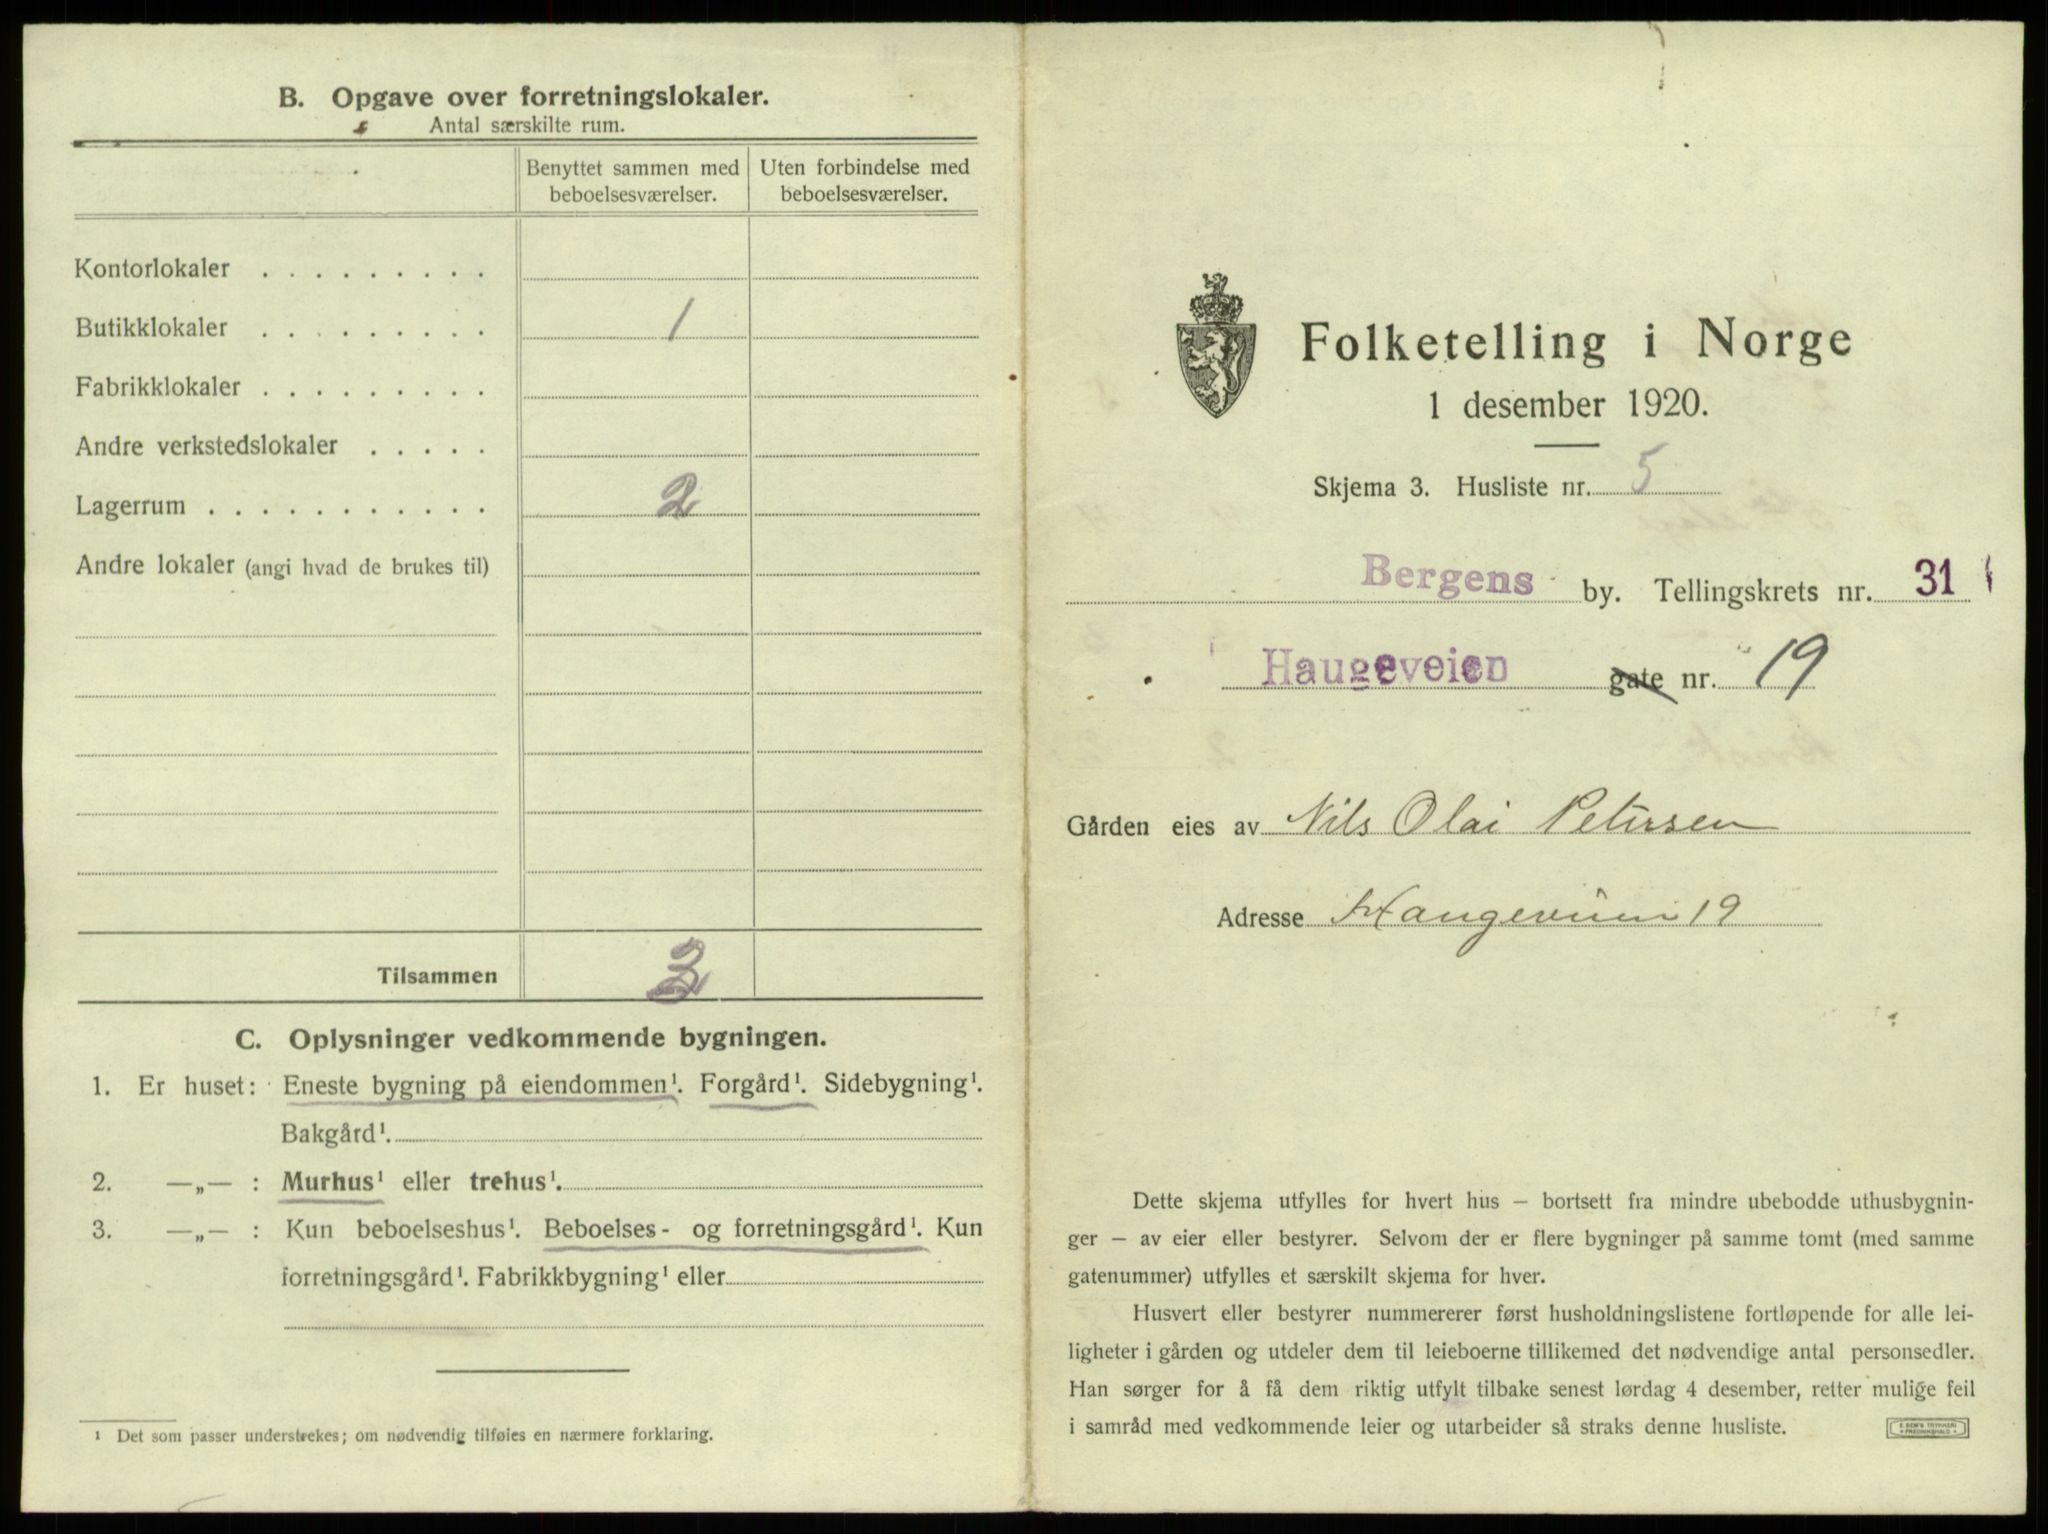 B. Opgave over forretningslokaler.
Antal særskilte rum.
Benyttet sammen med beboelsesværelser.
Uten forbindelse med beboelsesværelser.
Kontorlokaler . . . . . . . . .
Butikklokaler . . . . . . . . . 1
Fabrikklokaler . . . . . . . . .
Andre verkstedslokaler . . . . .
Lagerrum . . . . . . . . . . . . 2
Andre lokaler (angi hvad de brukes til)
Tilsammen 3
C. Oplysninger vedkommende bygningen.
1. Er huset: Eneste bygning på eiendommen¹. Forgård¹. Sidebygning¹.
Bakgård¹.
2. —„— : Murhus¹ eller trehus¹.
3. —„— : Kun beboelseshus¹. Beboelses- og forretningsgård¹. Kun
forretningsgård¹. Fabrikkbygning¹ eller
¹ Det som passer understrekes; om nødvendig tilføies en nærmere forklaring.
Folketelling i Norge
1 desember 1920.
Skjema 3. Husliste nr. 5
Bergens by. Tellingskrets nr. 31
Haugeveien gate nr. 19
Gården eies av Nils Olai Petersen
Adresse Haugeveien 19
Dette skjema utfylles for hvert hus — bortsett fra mindre ubebodde uthusbygnin-
ger — av eier eller bestyrer. Selvom der er flere bygninger på samme tomt (med samme
gatenummer) utfylles et særskilt skjema for hver.
Husvert eller bestyrer nummererer først husholdningslistene fortløpende for alle lei-
ligheter i gården og utdeler dem til leieboerne tillikemed det nødvendige antal personsedler.
Han sørger for å få dem riktig utfylt tilbake senest lørdag 4 desember, retter mulige feil
i samråd med vedkommende leier og utarbeider så straks denne husliste.